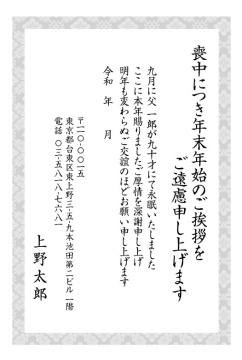 喪中につき年末年始のご挨拶を
ご遠慮申し上げます
九月に父 一郎が九十才にて永眠いたしました
ここに本年賜りましたご厚情を深謝申し上げ
明年も変わらぬご交誼のほどお願い申し上げます
令和 年 月
〒一一〇-〇〇一五
東京都台東区東上野三-五-九本池田第二ビル一階
電話 〇三-五八一八-七六八一
上野太郎